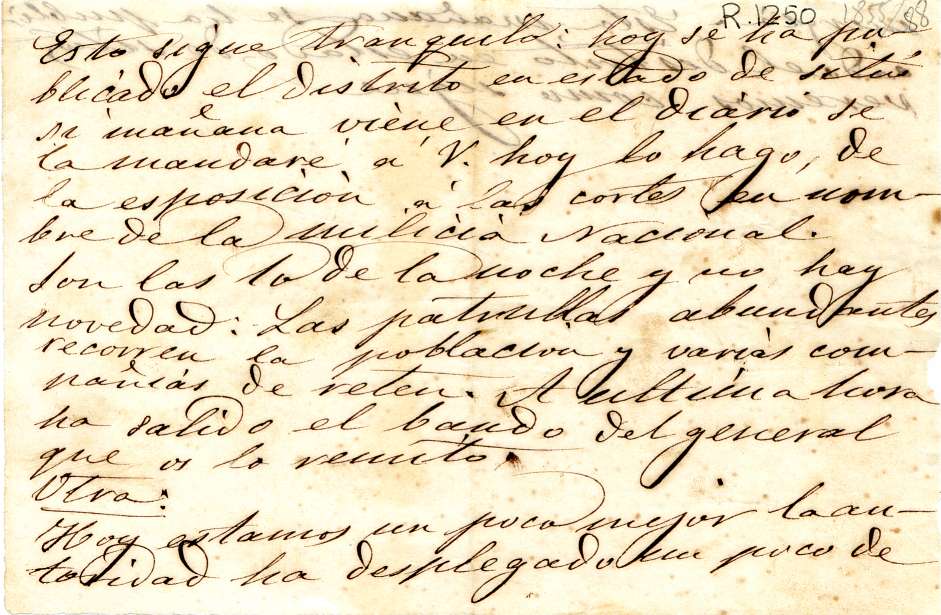 R.1250
Esto sigue tranquilo: hoy se ha pu-
blicado el distrito en estado de sitio
si mañana viene en el diario se
la mandaré á V. hoy lo hago, de
la esposición á las cortes en nom-
bre de la milicia Nacional.
Son las 10 de la noche y no hay
novedad: Las patrullas abundantes
recorren la poblacion y varias com-
pañias de reten. A ultima hora
ha salido el bando del general
que os lo remito.
Otra:
Hoy estamos un poco mejor la au-
toridad ha desplegado un poco de